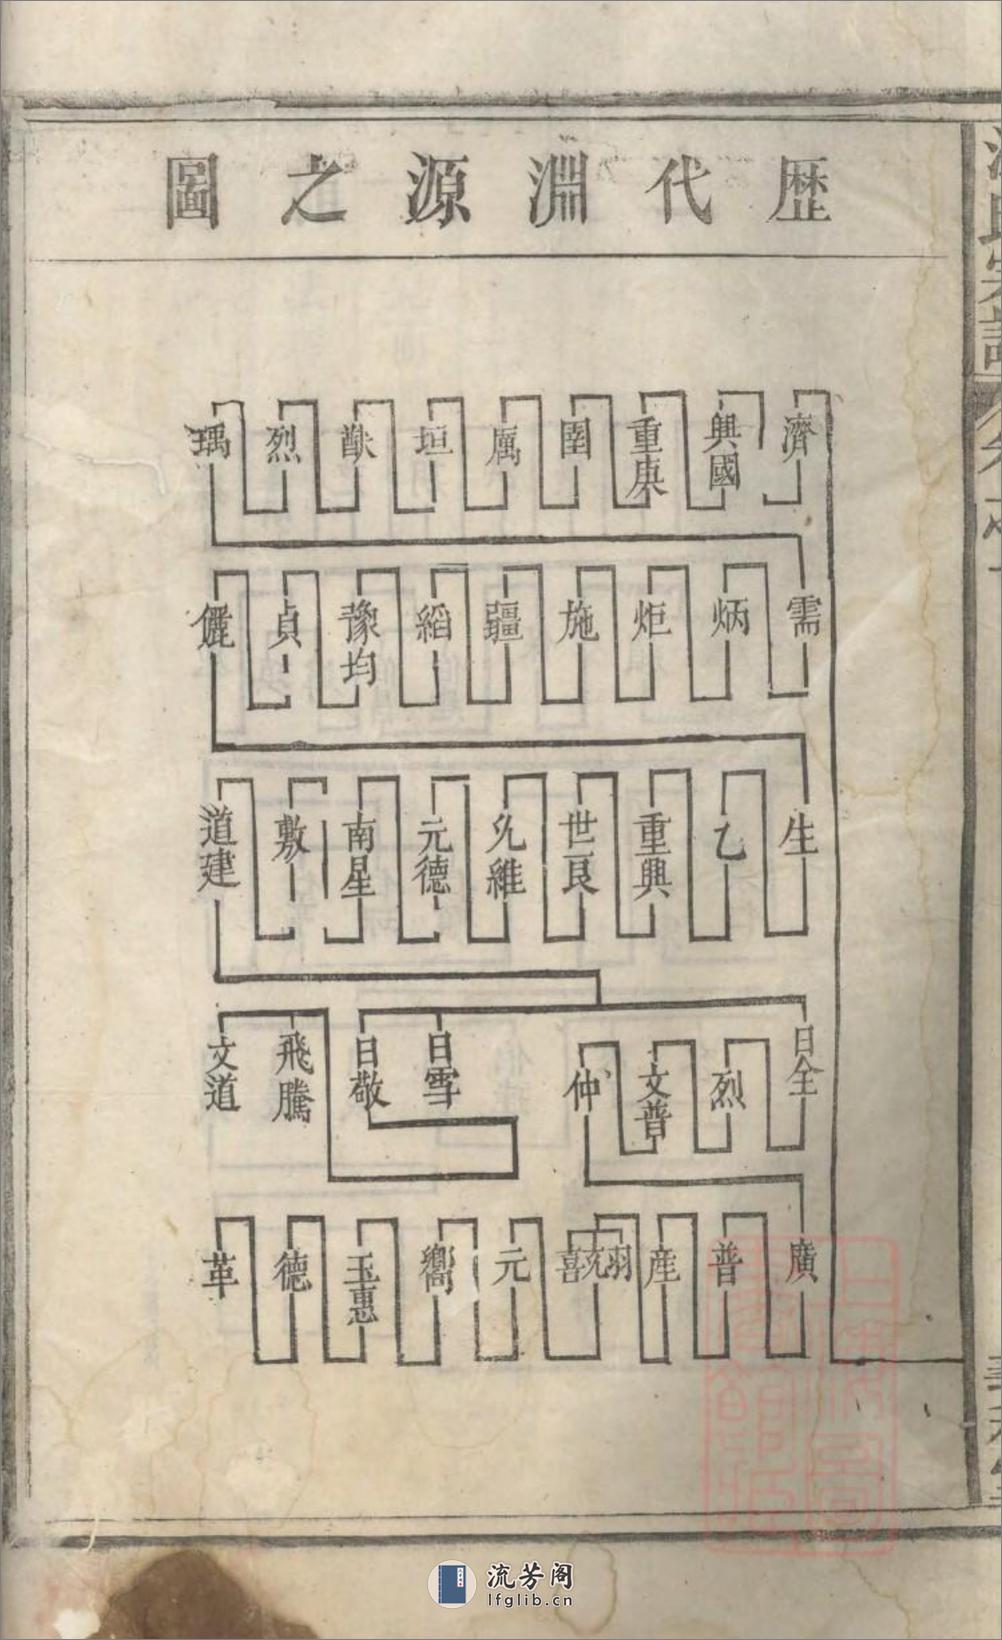 歷代淵源之圖
濟 興國 重庚 圉 厲 垣 猷 烈 瑀
需 炳 炬 施 疆 縚 豫均 貞 儷
生 乙 重興 世艮 允維 元德 南星 敷 道建
日全 烈 文普 仲 日雪 日敬 飛騰 文道
廣 普 産 翊 喜 元 嚮 玉惠 德 革
氏宗譜
流芳阁
lfglib.cn